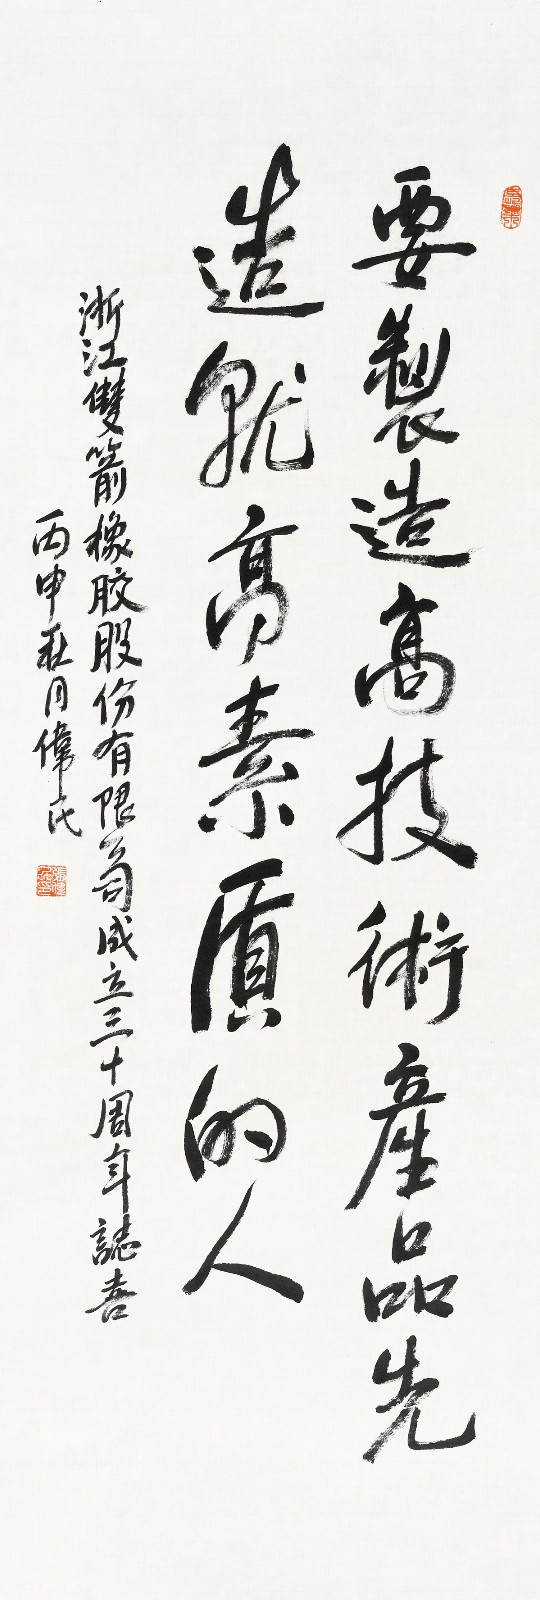 要製造高技術產品先
造就高素質的人
浙江雙箭橡膠股份有限公司成立三十周年誌喜
丙申秋月偉民